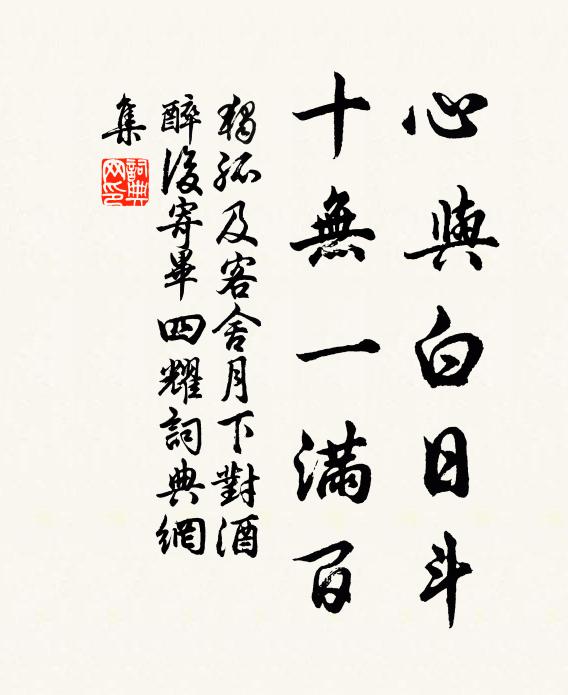 心與白日斗
十無一滿百
獨孤及客舍月下對酒
醉後寄畢四耀詞典網
集
詞典
网印